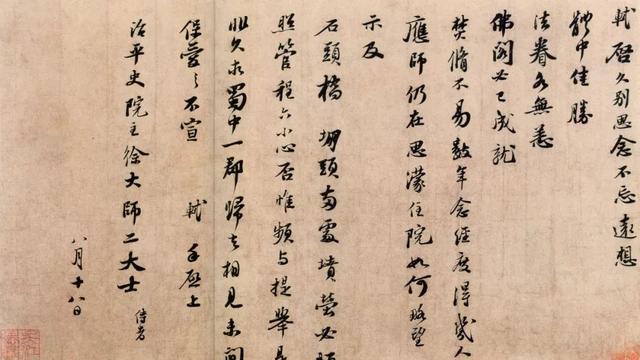 軾啓久別思念不忘遠想
體中佳勝
法眷各無恙
佛閣必已成就
焚脩不易數年念經度得幾人
應師仍在思濛住院如何略望
示及
石頭橋堋頭兩處墳塋必煩
照管程六小心否惟頻与提舉是
非久求蜀中一郡歸去相見未間
保愛之不宣 軾手啓上
治平史院主徐大師二大士 侍者
八月十八日